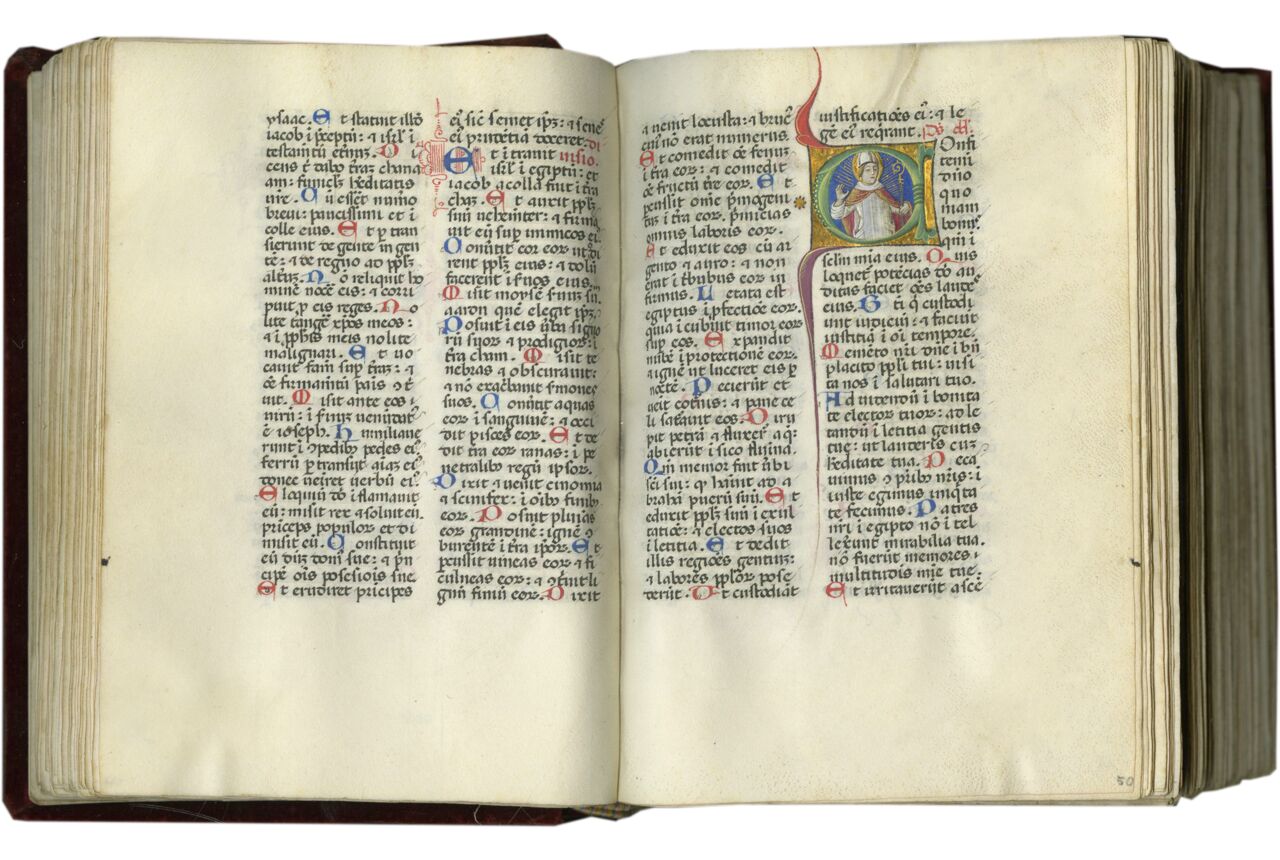 ysaac. Et statuit illō
iacob i p̄ceptū: ⁊ isrl̄ i
testam̄tū etn̄ū. D i
cens t̄ dabo tr̄aȝ chana
am: funiclȝ h̄editatis
vr̄e. Cū eēnt nūmo
breui: paucissimi et i
colle eius. Et ꝑ tran
sierunt de gente in gen
tē: ⁊ de regno ad ppl̄ȝ
altūȝ. Nō reliquit ho
minē nocē eis: ⁊ corri
puit ꝑ eis reges. No
lite tangē xp̄os meos:
⁊ i ꝓph̄is meis nolite
malignari. Et uo
cauit famē suꝑ tr̄aȝ: ⁊
oē firmam̄tū pais ꝯt̄
uit. Misit ante eos
uirū: i s̄uuȝ uenūdat᷒
ē ioseph. Humiliaue
runt i ꝯpedibꝰ pedes eiꝰ
ferrū ꝑ transijt aīaȝ eiꝰ
donec ueīret uerbū eiꝰ.
Eloquiū dn̄i īflamauit
eū: misit rex ⁊ soluit eū.
pr̄iceps populoꝝ et di
misit eū. Constituit
eū dn̄ȝ domꝰ sue: ⁊ pr̄n
cipē oīs possesiōis sue.
Et erudiret pr̄icipes
eiꝰ sic̄ semet ip̄ȝ: ⁊ senes
eiꝰ prudētiā doceret. di
Et i trauit uisio.
isrl̄ i egiptū: et
iacob acolla fuit i tr̄a
chaȝ. Et auxit pplȝ
suū uehemēter: ⁊ firma
uit eū suꝑ inimicos eiꝰ
Conūtit cor eoꝝ ut odi
rent pplȝ eius: ⁊ dolū
facerent i s̄uos eius.
Misit moysē s̄uuȝ suū.
aaron quē elegit ip̄ȝ.
Posuit i eis ūba signo
rū suoꝝ ⁊ prodigioꝝ: i
tr̄a cham. Misit te
nebras ⁊ obscurauit:
⁊ nō exac̄bauit s̄mones
suos. Conūtit aquas
eoꝝ i sanguinē: ⁊ occi
dit pisces eoꝝ. Et de
dit tr̄a eoꝝ ranas: i pe
netralibꝰ regū ipsoꝝ.
Dixit ⁊ uenit cinomia
⁊ scinifex: i oībꝰ finibꝰ
eoꝝ. Posuit pluuias
eoꝝ grandinē: ignē ꝯ
burentē i tr̄a ip̄oꝝ. Et
ꝑcussit uineas eoꝝ ⁊ fi
culneas eoꝝ: ⁊ ꝯt̄uit li
gnū finiū eoꝝ. Dixit
⁊ uenit locusta: ⁊ brucꝰ
cuiꝰ nō erat numerus.
Et comedit oē fenuȝ
i tr̄a eoꝝ: ⁊ comedit
oē fructū tr̄e eoꝝ. Et
ꝑcussit om̄e pr̄imogeni
tuȝ i tr̄a eoꝝ. pr̄imicias
omnis laboris eoꝝ.
Et eduxit eos cū ar
gento ⁊ auro: ⁊ non
erat i tribubus eoꝝ in
firmus. Letata est
egiptus i ꝓfectiōe eoꝝ
quia i cubuit timor eoꝝ
suꝑ eos. Expandit
nubē i protectionē eoꝝ
⁊ ignē ut luceret eis ꝑ
noctē. Pecierūt et
ueit coturnix: ⁊ pane ce
li saturauit eos. Diru
pit petrā ⁊ fluxerūt aq̄:
abierūt i sico flumina.
Qm̄ memor fuit ūbi
sc̄i sui: q̄ habuit ad a
braham puerū suū. Et
eduxit pplȝ suū i exul
tatiōe: ⁊ electos suos
i letitia. Et dedit
illis regiōes gentiuȝ:
⁊ labores pploꝝ posse
derūt. Ut custodiāt
iustificatiōes eiꝰ: ⁊ le
gē eiꝰ reqrant. Ps dd.
Confi
temi
dn̄o
quo
niam
bonus
qm̄ i
sclm̄ mīa eius. Quis
loquet᷒ potēcias dn̄i au
ditas faciet oēs laudes
eius. Bti q̄ custodi
unt iudiciū: ⁊ faciūt
iustitiā i oī tempore.
Memēto nr̄i dn̄e i bn̄
placito ppl̄i tui: uisi
ta nos i salutari tuo.
Ad uidendū i bonita
te electoꝝ tuoꝝ: ad le
tandū i letitia gentis
tue: ut lauderis cuȝ
h̄editate tua. Pecca
uimus ꝯ pr̄ibꝰ nr̄is: i
iuste egimus iniqta
tē fecimus. Patres
nr̄i i egipto nō i tel
lexerunt mirabilia tua.
nō fuerūt memores.
multitudīs mīe tue.
Et irritauerūt ascē
50